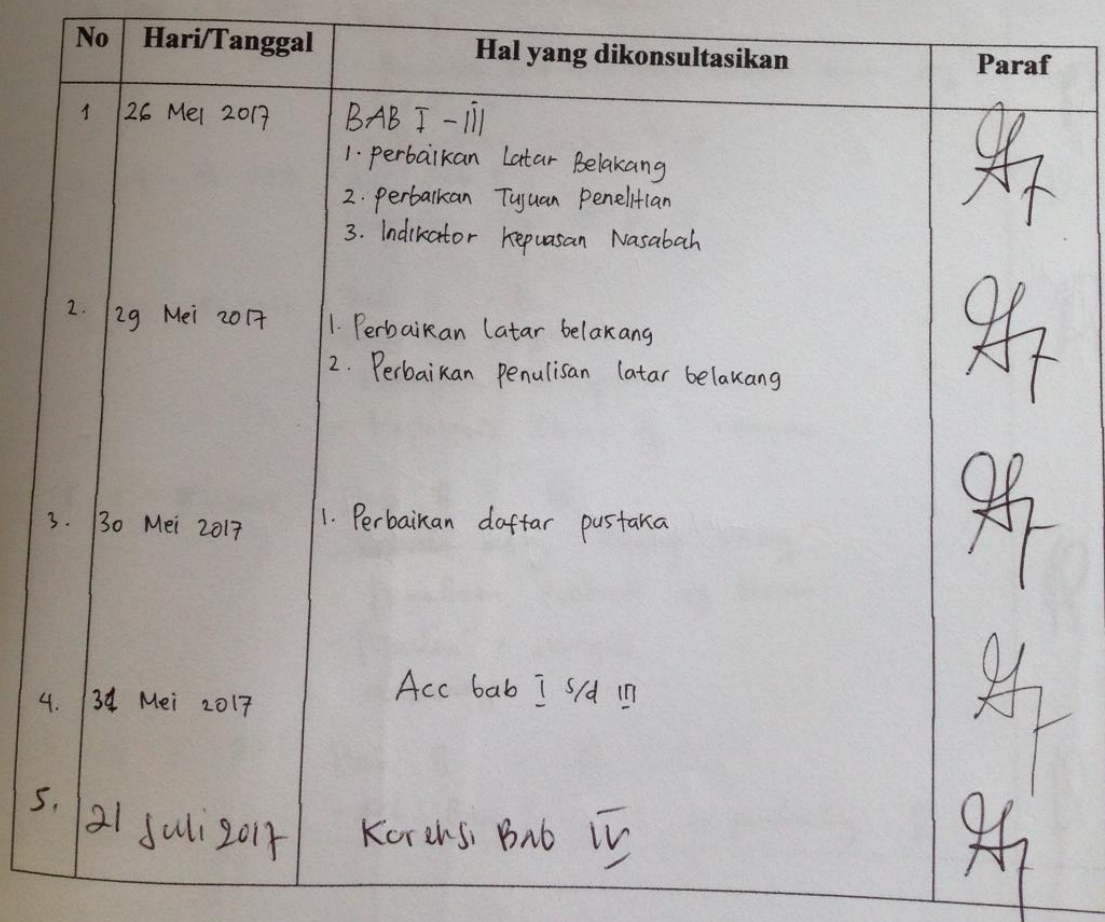 No Hari/Tanggal Hal yang dikonsultasikan Paraf
1 26 Mei 2017 BAB I - III
1. perbaikan Latar Belakang
2. perbaikan Tujuan penelitian
3. Indikator kepuasan Nasabah
2. 29 Mei 2017 1. Perbaikan latar belakang
2. Perbaikan penulisan latar belakang
3. 30 Mei 2017 1. Perbaikan daftar pustaka
4. 31 Mei 2017 Acc bab I s/d III
5. 21 Juli 2017 Koreksi Bab IV